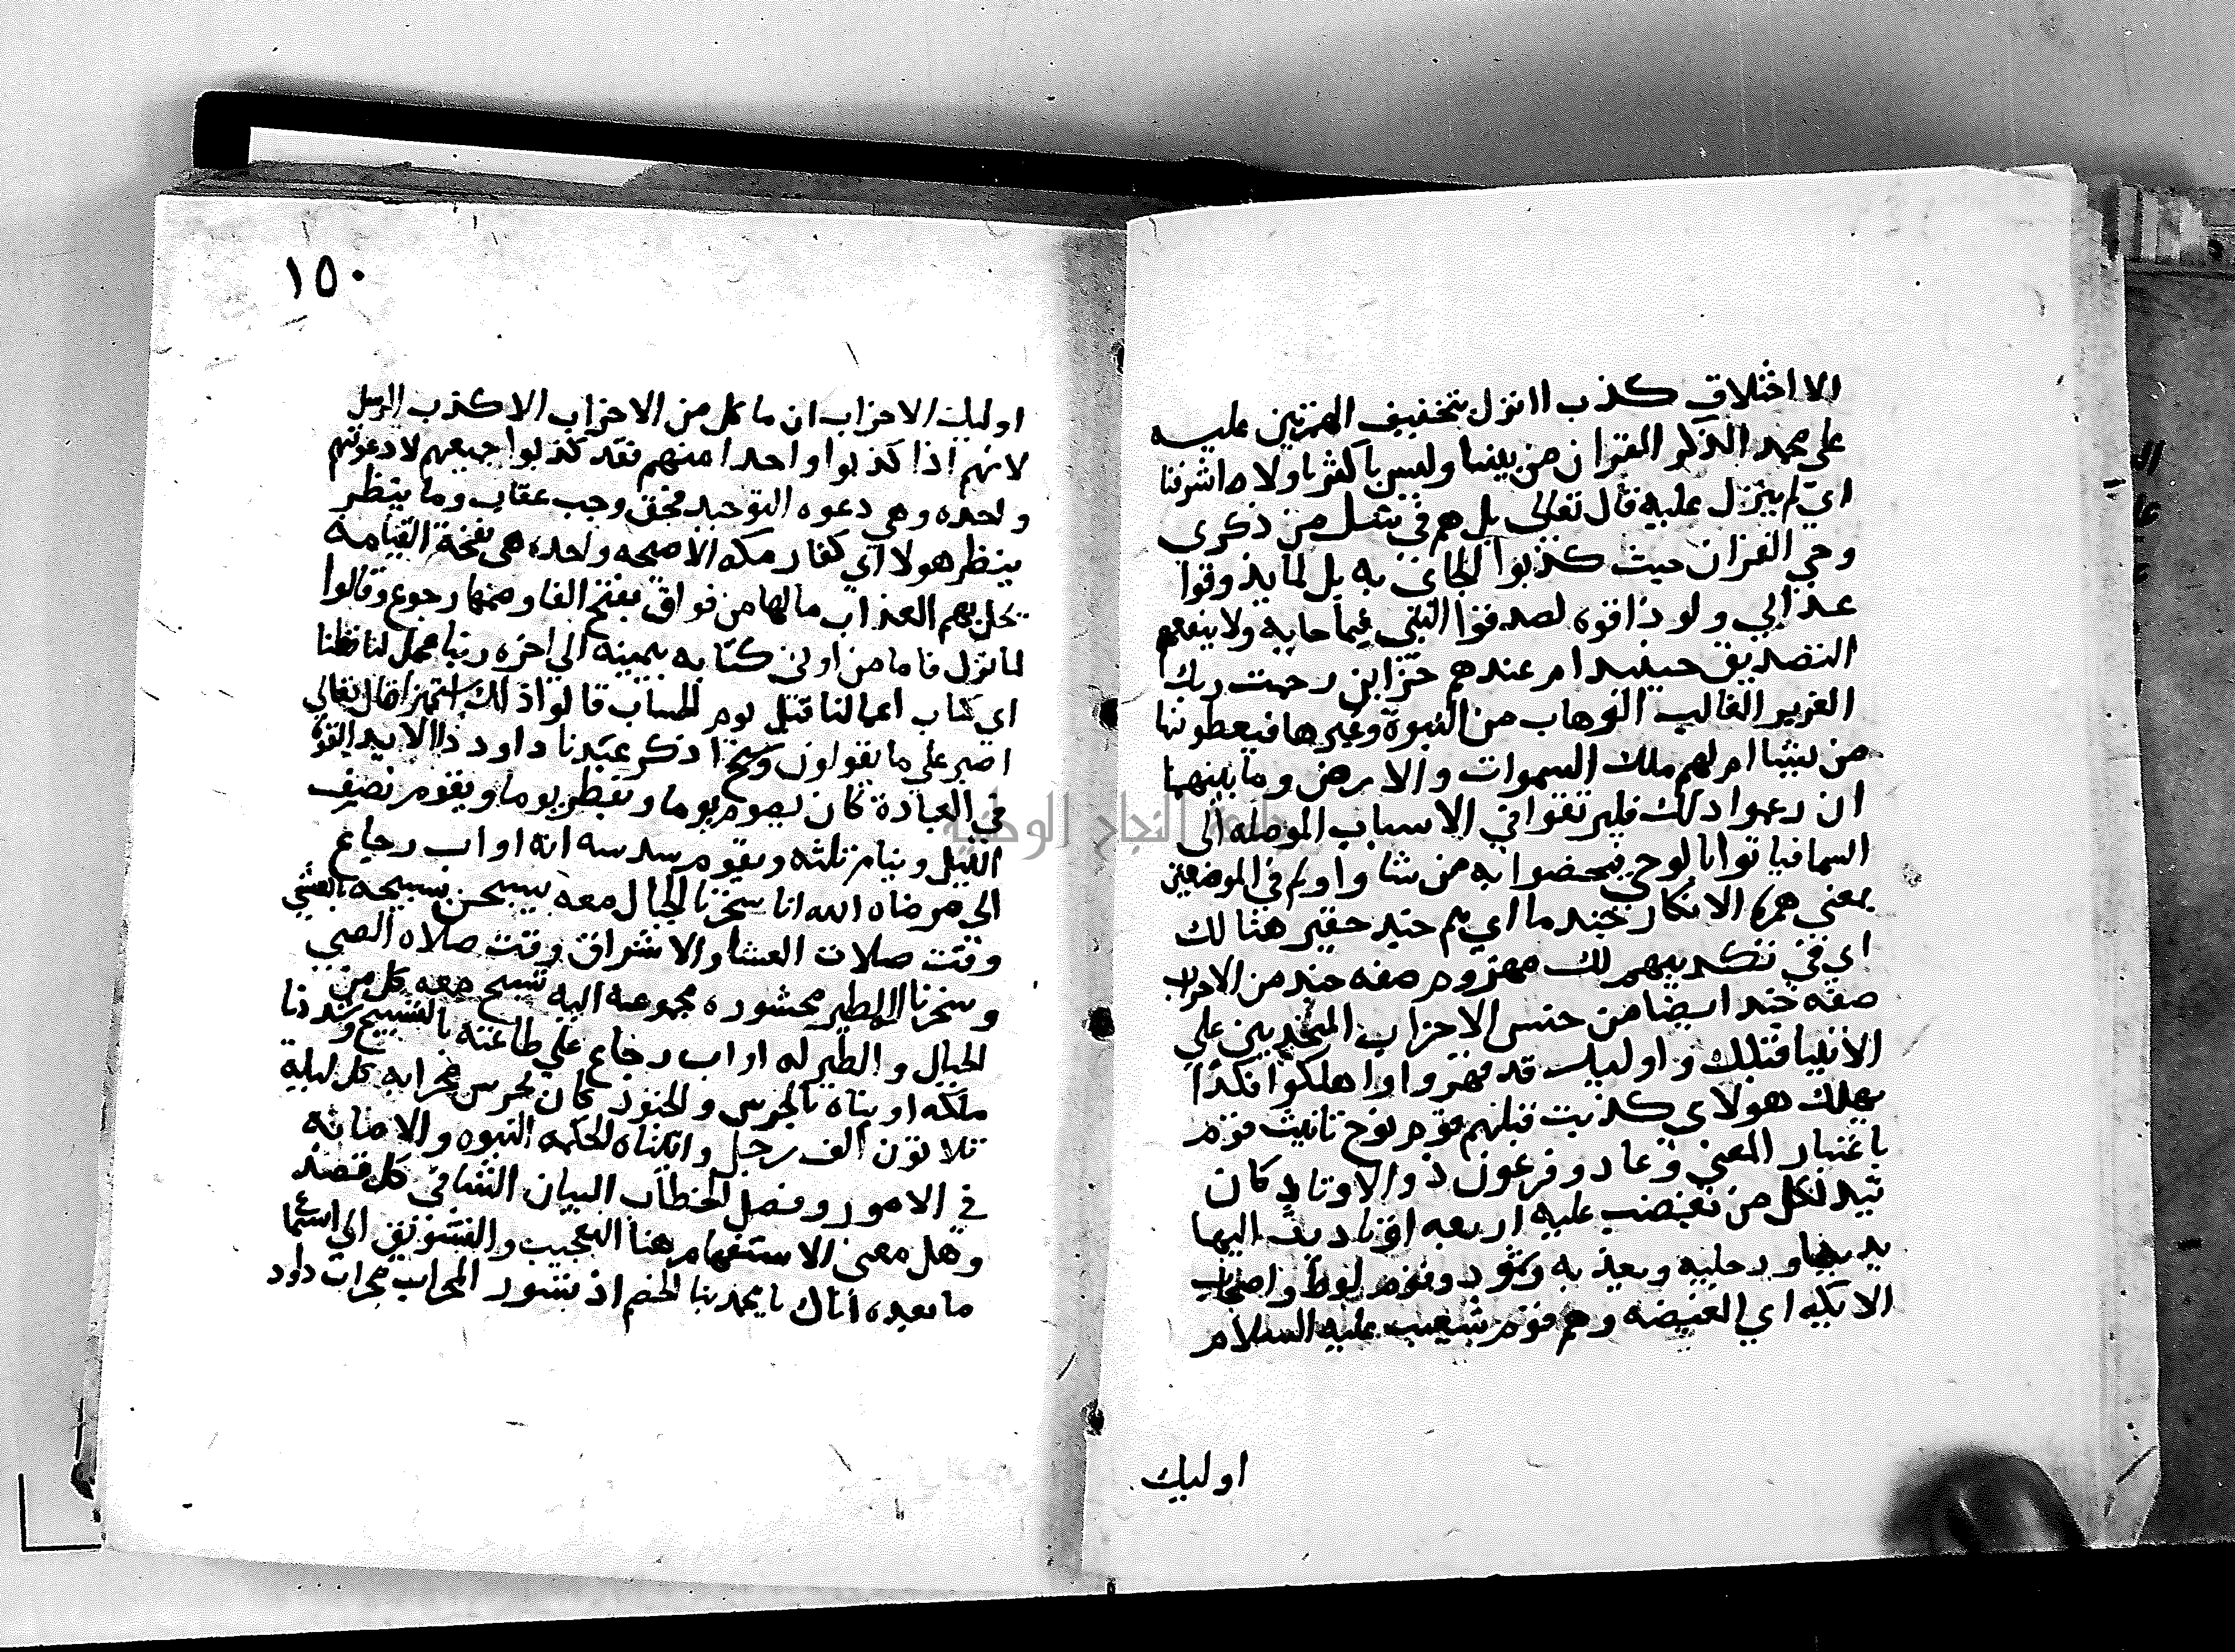 الا اختلاق كذب اانزل بتخفيف الهمزتين عليه
علي محمد الذكر القران من بيننا وليس باكثرنا ولا اشرفنا
اي لم ينزل عليه قال تعالي بل هم في شك من ذكري
وحي القران حيث كذبوا الجاي به بل لما يذوقوا
عذابي ولو ذاقوه لصدقوا النبي فيما جا به ولا ينفعهم
التصديق حينيد ام عندهم خزاين رحمت ربك
العزيز الغالب الوهاب من النبوة وغيرها فيعطونها
من شيا ام لهم ملك السموات والارض وما بينهما
ان زعموا ذلك فليرتقوا في الاسباب الموصله الي
السما فياتوا بالوحي فيخصوا به من شا وا ولم في الموضعين
بمعني همزه الانكار جند ما اي هم جند حقير هنالك
اي في تكذيبهم لك مهزوم صفه جند من الاحزاب
صفه جند ايضا من جنس الاحزاب المتحزبين علي
الانبيا قبلك واوليك قد قهروا واهلكوا فكذا
يهلك هولاي كذبت قبلهم قوم نوح تانيث قوم
باعتبار المعني وعاد وفرعون ذو الاوتاد كان
يتد لكل من يغضب عليه اربعه اوتاد يشد اليها
يديه ورجليه ويعذبه وثمود وقوم لوط واصحاب
الايكه اي الغيضه وهم قوم شعيب عليه السلام
اوليك
١٥٠
اوليك الاحزاب ان ما كل من الاحزاب الا كذب الرسل
لانهم اذا كذبوا واحدا منهم فقد كذبوا جميعهم لا دعوتهم
واحده وهي دعوه التوحيد فحق وجب عقاب وما ينظر
ينظر هولا اي كفار مكه الا صيحه واحده هي نفخة القيامه
تحل بهم العذاب ما لها من فواق بفتح الفا وضمها رجوع وقالوا
لما نزل فاما من اوتي كتابه بيمينه الي اخره ربنا عجل لنا قطنا
اي كتاب اعمالنا قبل يوم الحساب قالوا ذلك استهزا قال تعالي
اصبر علي ما يقولون واذكر عبدنا داود ذا الايد القوة
في العبادة كان يصوم يوما ويفطر يوما ويقوم نصف
الليل وينام ثلثه ويقوم سدسه انه اواب رجاع
الي مرضاه الله انا سخرنا الجبال معه يسبحن بتسبيحه بالعشي
وقت صلات العشا والاشراق وقت صلاه الضحي
وسخرنا الطير محشوره مجموعه اليه تسبح معه كل من
الجبال والطير له اواب رجاع علي طاعته بالتسبيح وشددنا
ملكه اويناه بالحرس والجنود كان يحرس محرابه كل ليلة
ثلاثون الف رجل واتيناه الحكمه النبوه والاصابه
في الامور وفصل الخطاب البيان الشافي كل قصد
وهل معني الاستفهام هنا التعجيب والتشويق الي استما
ما بعده اتاك يا محمد نبا الخصم اذ تسور المحراب محراب داود